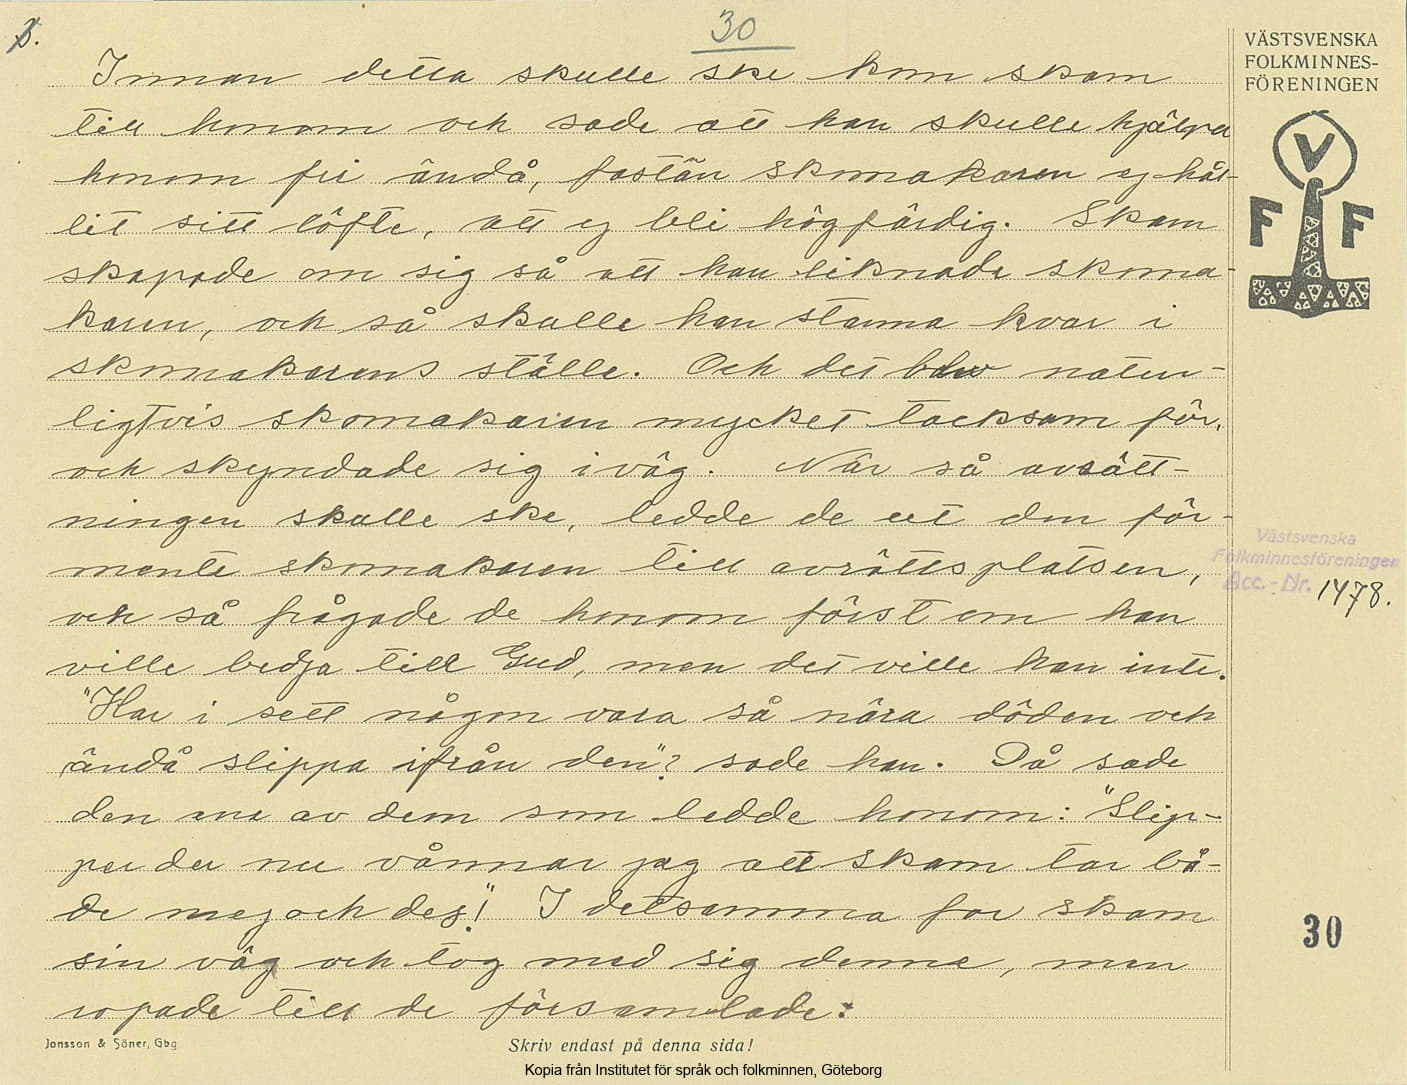 5.
30
VÄSTSVENSKA
FOLKMINNES-
FÖRENINGEN
V
F F
Innan detta skulle ske kom skam
till honom och sade att han skulle hjälpa
honom fri ändå, fastän skomakaren ej hål-
lit sitt löfte, att ej bli högfärdig. Skam
skapade om sig så att han liknade skoma-
karen, och så skulle han stanna kvar i
skomakarens ställe. Och det blev natur-
ligtvis skomakaren mycket tacksam för,
och skyndade sig iväg. När så avsätt-
ningen skulle ske, ledde de ut den för-
mente skomakaren till avrättsplatsen,
och så frågade de honom först om han
ville bedja till Gud, men det ville han inte.
"Har i sett någon vara så nära döden och
ändå slippa ifrån den"? sade han. Då sade
den ena av dem som ledde honom: "Slip-
per du nu vånnar jag att skam tar bå-
de mej och dej!" I detsamma for skam
sin väg och tog med sig denne, men
ropade till de församlade:
Västsvenska
Folkminnesföreningen
Acc. - Nr. 1478.
30
Jonsson & Söner, Gbg
Skriv endast på denna sida!
Kopia från Institutet för språk och folkminnen, Göteborg